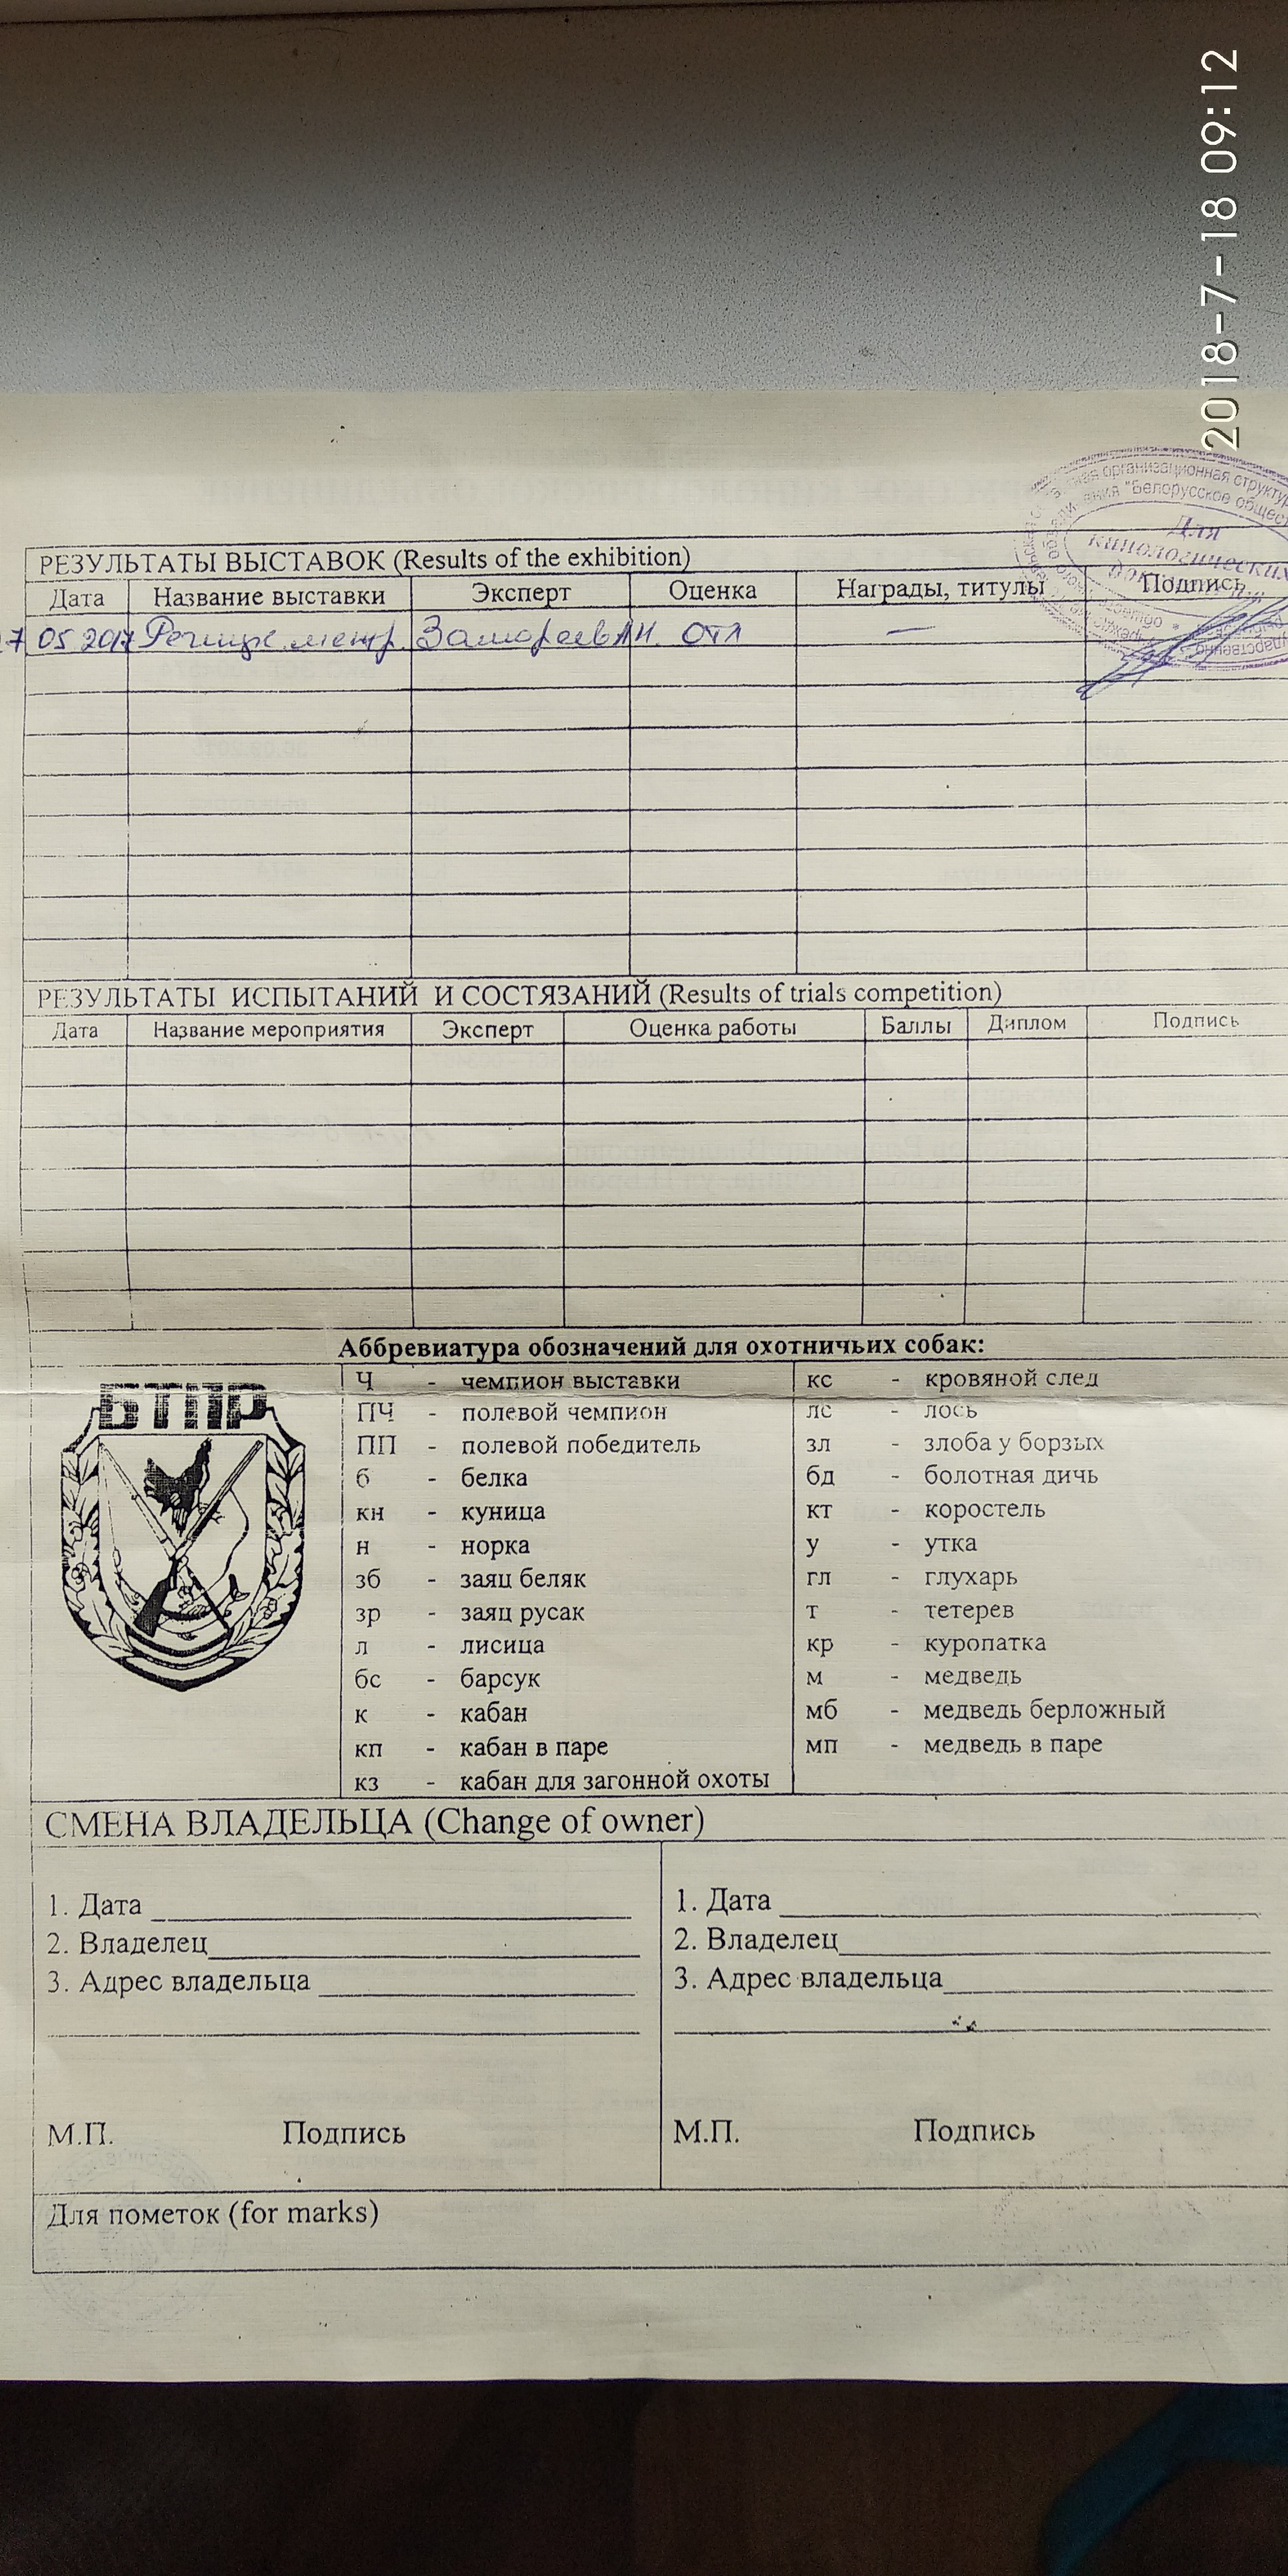 2018-7-18 09:12
ная организационная структура
"Белорусское общест
Для
кинологических
РЕЗУЛЬТАТЫ ВЫСТАВОК (Results of the exhibition)
Дата Название выставки Эксперт Оценка Награды, титулы Подпись
7 05 2017 ОТЛ —
РЕЗУЛЬТАТЫ ИСПЫТАНИЙ И СОСТЯЗАНИЙ (Results of trials competition)
Дата Название мероприятия Эксперт Оценка работы Баллы Диплом Подпись
Аббревиатура обозначений для охотничьих собак:
БТПР
Ч - чемпион выставки кс - кровяной след
ПЧ - полевой чемпион лс - лось
ПП - полевой победитель зл - злоба у борзых
б - белка бд - болотная дичь
кн - куница кт - коростель
н - норка у - утка
зб - заяц беляк гл - глухарь
зр - заяц русак т - тетерев
л - лисица кр - куропатка
бс - барсук м - медведь
к - кабан мб - медведь берложный
кп - кабан в паре мп - медведь в паре
кз - кабан для загонной охоты
СМЕНА ВЛАДЕЛЬЦА (Change of owner)
1. Дата 1. Дата
2. Владелец 2. Владелец
3. Адрес владельца 3. Адрес владельца
М.П. Подпись М.П. Подпись
Для пометок (for marks)